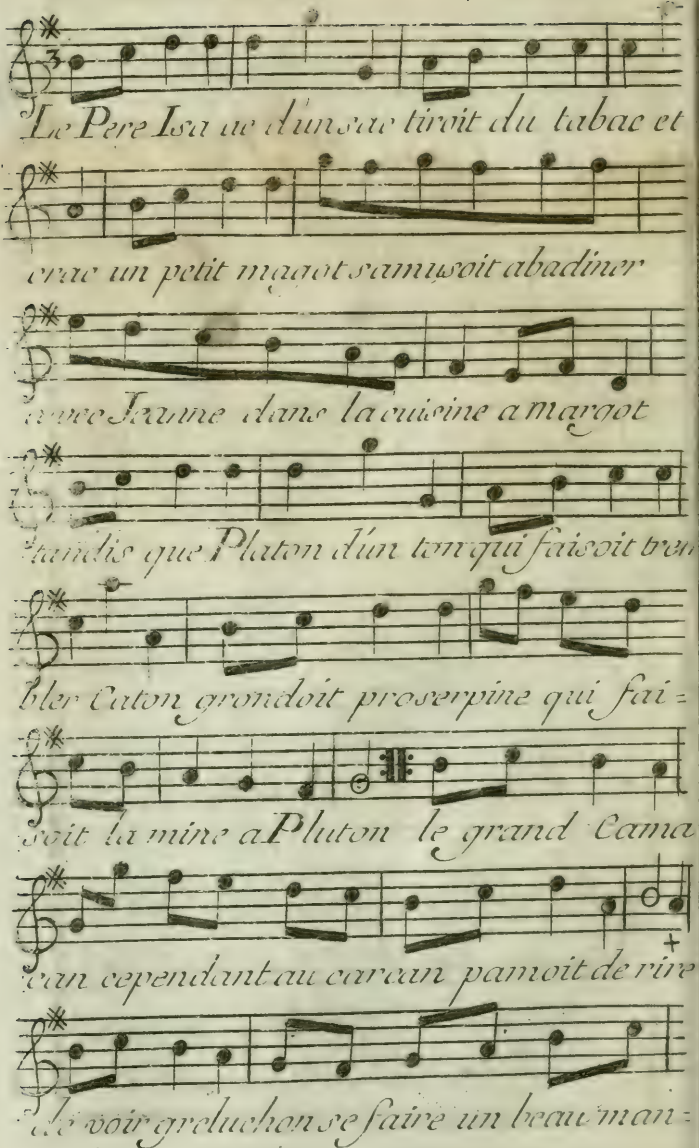 Le Pere Isa ac d'un sac tiroit du tabac et
crac un petit magot samusoit abadiner
avec Jeanne dans la cuisine a margot
tandis que Platon d'un ton qui faisoit trem
bler Caton grondoit proserpine qui fai=
soit la mine a Pluton le grand Cama
can cependant au carcan pamoit de rire
de voir greluchon se faire un beau man=